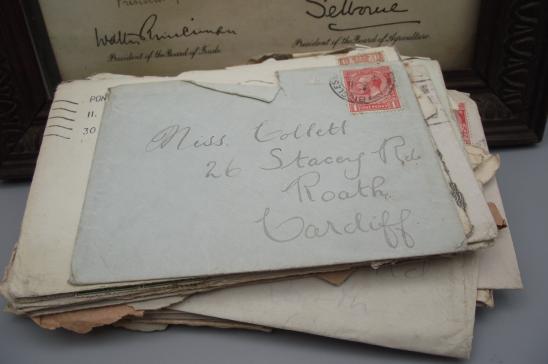 Walter Runciman
President of the Board of Trade.
Selborne
President of the Board of Agriculture.
PON
11.
30
Miss. Collett
26 Stacey Rd.
Roath.
Cardiff.